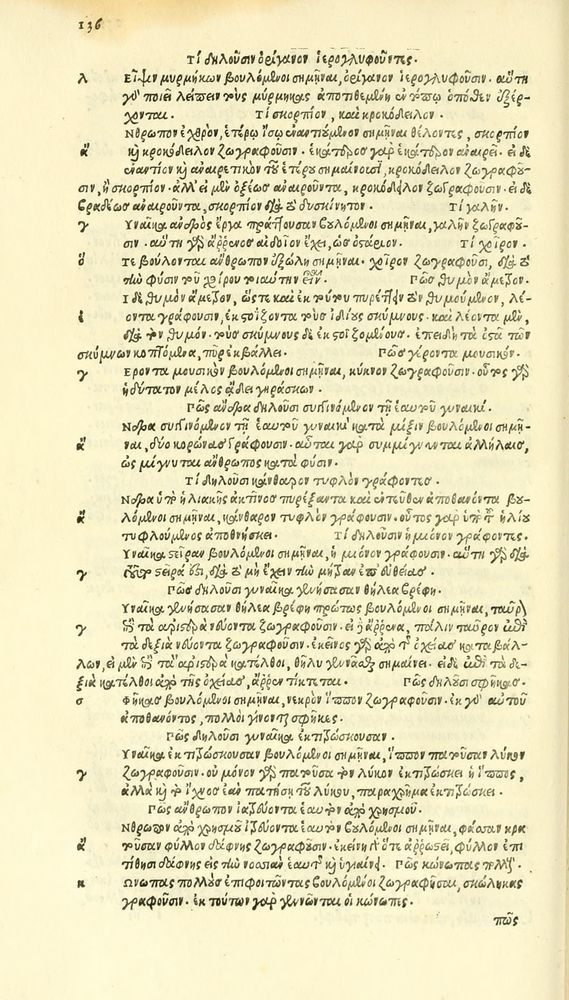 136
Τί δηλοῦσιν ὀρίγανον ἱερογλυφοῦντες.
λ Ειψιν μυρμήκων βουλόμενοι σημῆναι, ὀρίγανον ἱερογλυφοῦσιν. αὕτη
γὰρ ποιεῖ λείπειν τοὺς μύρμηκας ἀποτιθεμένη ἐν τόπῳ ὁπόθεν ἐξέρ-
χονται. Τί σκορπίον, καὶ κροκόδειλον.
Νθρωπον ἐχθρὸν, ἑτέρῳ ἴσῳ ἐναντιούμενον σημῆναι θέλοντες, σκορπίον
ἄ καὶ κροκόδειλον ζωγραφοῦσιν. ἑκάτερος γὰρ ἑκάτερον ἀναιρεῖ. εἰ δὲ
ἐναντίον καὶ ἀναιρετικὸν τοῦ ἑτέρου σημαίνουσι, κροκόδειλον ζωγραφοῦ-
σιν, ἢ σκορπίον. ἀλλ' εἰ μὲν ὀξέως ἀναιροῦντα, κροκόδειλον ζωγραφοῦσιν. εἰ δὲ
βραδέως ἀναιροῦντα, σκορπίον διὰ τὸ δυσκίνητον. Τί γαλῆν.
γ Υναῖκα ἀνδρὸς ἔργα πράττουσαν βουλόμενοι σημῆναι, γαλῆν ζωγραφοῦ-
σιν. αὕτη γὰρ ἄρρενος αἰδοῖον ἔχει, ὡς ὀστάριον. Τί χοῖρον.
ὅ Τε βούλονται ἄνθρωπον ἐξώλη σημῆναι. χοῖρον ζωγραφοῦσι, διὰ τὸ
τὴν φύσιν τοῦ χοίρου τοιαύτην εἶναι. Πῶς θυμὸν ἄμετρον.
Ι δὲ θυμὸν ἄμετρον, ὥστε καὶ ἐκ τούτου πυρέττειν τὸν θυμούμενον, λέ-
ἐ οντα γράφουσιν, ἐκστοΐζοντα τοὺς ἰδίους σκύμνους. καὶ λέοντα μὲν,
διὰ τὸν θυμόν. τοὺς σκύμνους δὲ ἐκστοϊζομένους. ἐπειδὴ τὰ ὀστᾶ τῶν
σκύμνων κοπτόμενα, πῦρ ἐκβάλλει. Πῶς γέροντα μουσικόν.
γ Εροντα μουσικὸν βουλόμενοι σημῆναι, κύκνον ζωγραφοῦσιν. οὗτος γὰρ
ἡδύτατον μέλος ᾄδει γηράσκων.
Πῶς ἄνδρα δηλοῦσι συγγινόμενον τῇ ἑαυτοῦ γυναικί.
Νδρα συγγινόμενον τῇ ἑαυτοῦ γυναικὶ κατὰ μίξιν βουλόμενοι σημῆ-
ἄ ναι, δύο κορώνας γράφουσιν. αὗται γὰρ συμμίγνυνται ἀλλήλαις,
ὡς μίγνυται ἄνθρωπος κατὰ φύσιν.
Τί δηλοῦσι κάνθαρον τυφλὸν γράφοντες.
Νδρα ὑπὸ ἡλιακῆς ἀκτῖνος πυρέξαντα καὶ ἐντεῦθεν ἀποθανόντα βου-
ἄ λόμενοι σημῆναι, κάνθαρον τυφλὸν γράφουσιν. οὗτος γὰρ ὑπὸ τοῦ ἡλίου
τυφλούμενος ἀποθνήσκει. Τί δηλοῦσιν ἡμίονον γράφοντες.
Υναῖκα στεῖραν βουλόμενοι σημῆναι, ἡμίονον γράφουσιν. αὕτη γὰρ διὰ
γ τοῦτο στεῖρά ἐστι, διὰ τὸ μὴ ἔχειν τὴν μήτραν ἐπ' εὐθείας.
Πῶς δηλοῦσι γυναῖκα γεννήσασαν θήλεα βρέφη.
Υναῖκα γεννήσασαν θήλεα βρέφη πρώτως βουλόμενοι σημῆναι, ταῦρον
γ ἐπὶ τὰ ἀριστερὰ νεύοντα ζωγραφοῦσιν. εἰ δὲ ἄρρενα, πάλιν ταῦρον ἐπὶ
τὰ δεξιὰ νεύοντα ζωγραφοῦσιν. ἐκεῖνος γὰρ ἀπὸ τῆς ὀχείας καταβάλ-
λων, εἰ μὲν ἐπὶ τὰ ἀριστερὰ κατέλθοι, θῆλυ γεννᾶσθαι σημαίνει. εἰ δὲ ἐπὶ τὰ δε-
ξιὰ κατέλθοι ἀπὸ τῆς ὀχείας, ἄρρεν τίκτεται. Πῶς δηλοῦσι σφῆκας.
σ Φῆκας βουλόμενοι σημῆναι, νεκρὸν ἵππον ζωγραφοῦσιν. ἐκ γὰρ αὐτοῦ
ἀποθανόντος, πολλοὶ γίνονται σφῆκες.
Πῶς δηλοῦσι γυναῖκα ἐκτιτρώσκουσαν.
Υναῖκα ἐκτιτρώσκουσαν βουλόμενοι σημῆναι, ἵππον πατοῦσαν λύκον
γ ζωγραφοῦσιν. οὐ μόνον γὰρ πατοῦσα τὸν λύκον ἐκτιτρώσκει ἡ ἵππος,
ἀλλὰ καὶ τὸ ἴχνος ἐὰν πατήσῃ τοῦ λύκου, παραχρῆμα ἐκτιτρώσκει.
Πῶς ἄνθρωπον ἰατρεύοντα ἑαυτὸν ἀπὸ χρησμοῦ.
Νθρωπον ἀπὸ χρησμοῦ ἰατρεύοντα ἑαυτὸν βουλόμενοι σημῆναι, φάσσαν κρα
ἄ τοῦσαν φύλλον δάφνης ζωγραφοῦσιν. ἐκείνη γὰρ ὅτε ἀρρωστεῖ, φύλλον ἐπι
τίθησι δάφνης εἰς τὴν νοσσιὰν ἑαυτῆς καὶ ὑγιαίνει. Πῶς κώνωπας πολλούς.
κ Ωνωπας πολλοὺς ἐπιφοιτῶντας βουλόμενοι ζωγραφῆσαι, σκώληκας
γράφουσιν. ἐκ τούτων γὰρ γεννῶνται οἱ κώνωπες.
πῶς